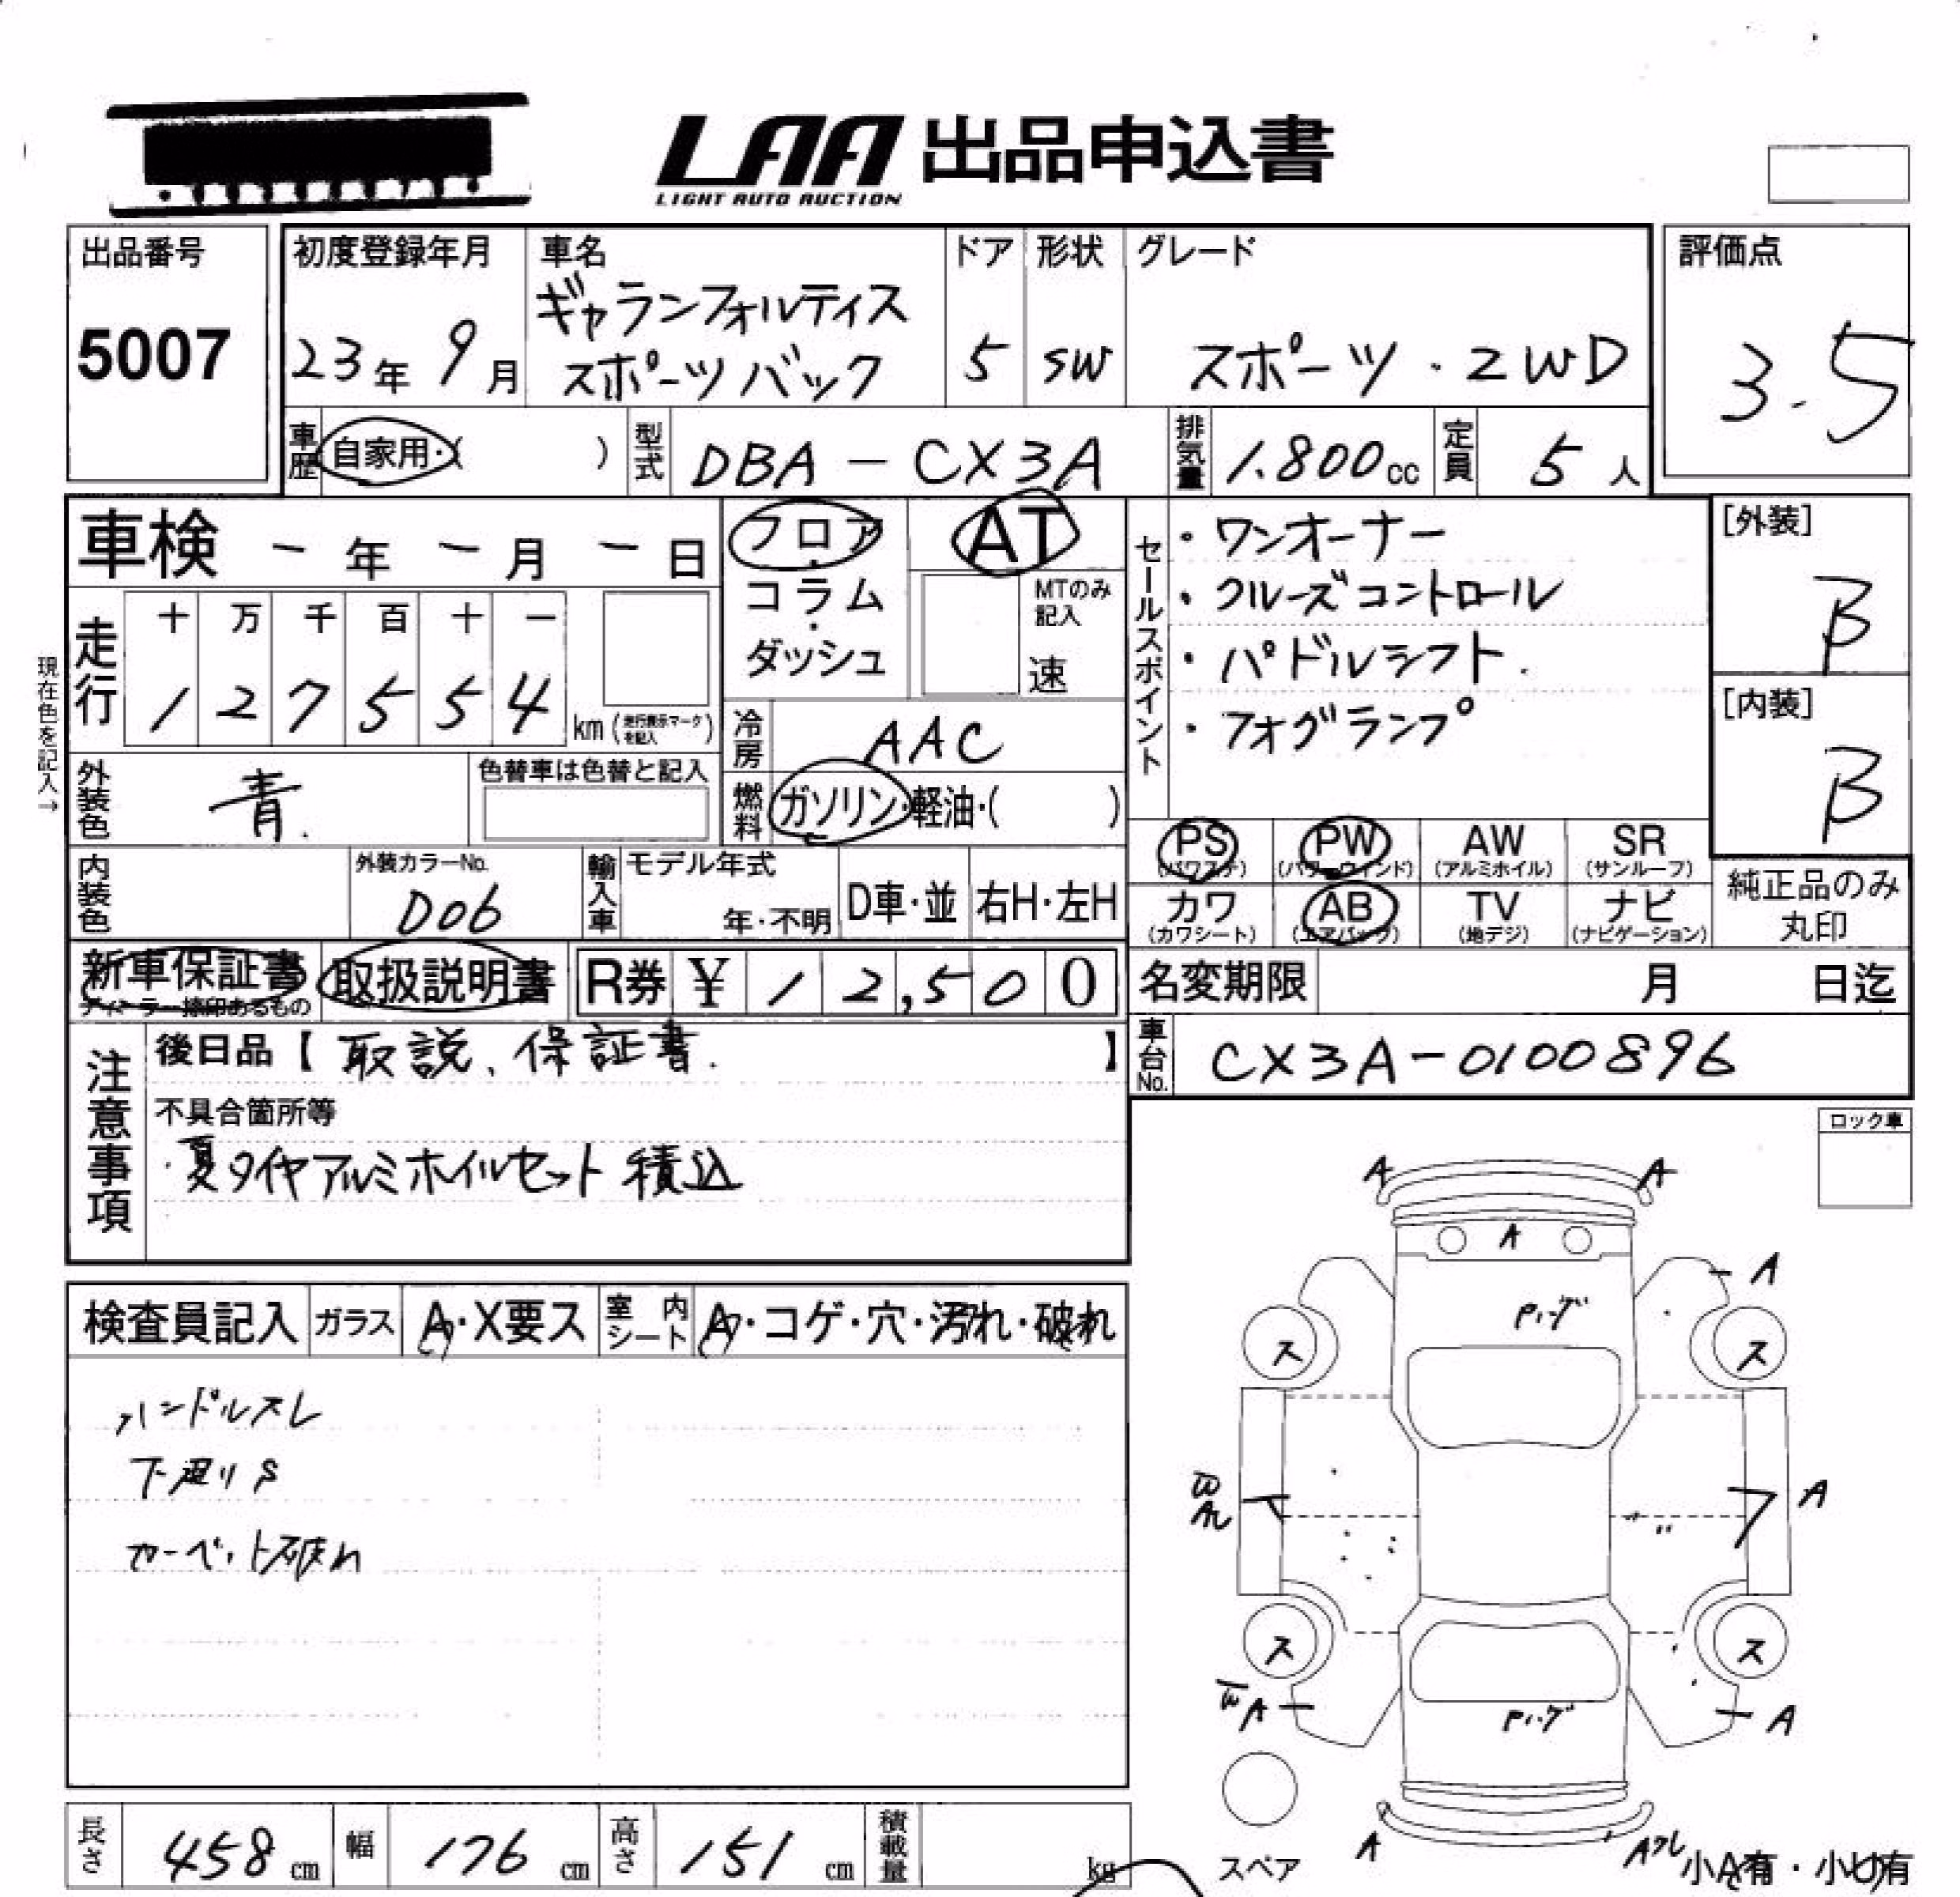 LAA 出品申込書
LIGHT AUTO AUCTION
出品番号
5007
初度登録年月
23年 9月
車名
ギャランフォルティス
スポーツバック
ドア
5
形状
SW
グレード
スポーツ・2WD
評価点
3.5
車歴 自家用・( )
型式 DBA-CX3A
排気量 1.800cc
定員 5人
車検 ー年 ー月 ー日
フロア・コラム・ダッシュ
AT
MTのみ記入
速
セールスポイント
・ワンオーナー
・クルーズコントロール
・パドルシフト.
・フォグランプ
[外装]
B
[内装]
B
現在色を記入→
走行
十 万 千 百 十 一
1 2 7 5 5 4 km (走行表示マークを記入)
冷房 AAC
外装色 青.
色替車は色替と記入
燃料 ガソリン・軽油・( )
PS (パワステ) PW (パワーウィンド) AW (アルミホイル) SR (サンルーフ)
カワ (カワシート) AB (エアバッグ) TV (地デジ) ナビ (ナビゲーション)
純正品のみ
丸印
内装色
外装カラーNo.
D06
輸入車
モデル年式
年・不明
D車・並
右H・左H
新車保証書
ディーラー捺印あるもの
取扱説明書
R券 ¥ 12,500
名変期限 月 日迄
車台No. CX3A-0100896
注意事項
後日品【取説、保証書.】
不具合箇所等
・夏タイヤアルミホイルセット積込
ロック車
検査員記入
ガラス A・X要ス
室内シート A・コゲ・穴・汚れ・破れ
ハンドルスレ
下廻りS
カーペット破れ
A A
A
A
ス ス
A
ス ス
A
A
A
スペア
小A有・小U有
長さ 458cm
幅 176cm
高さ 151cm
積載量 kg